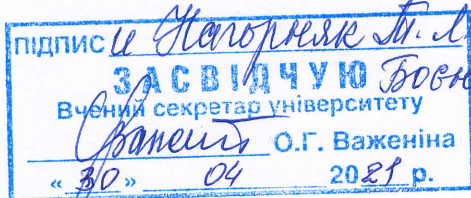 ПІДПИС и Нагорняк Т. Л.
ЗАСВІДЧУЮ
Вчений секретар університету
О.Г. Важеніна
« 30 » 04 2021 р.